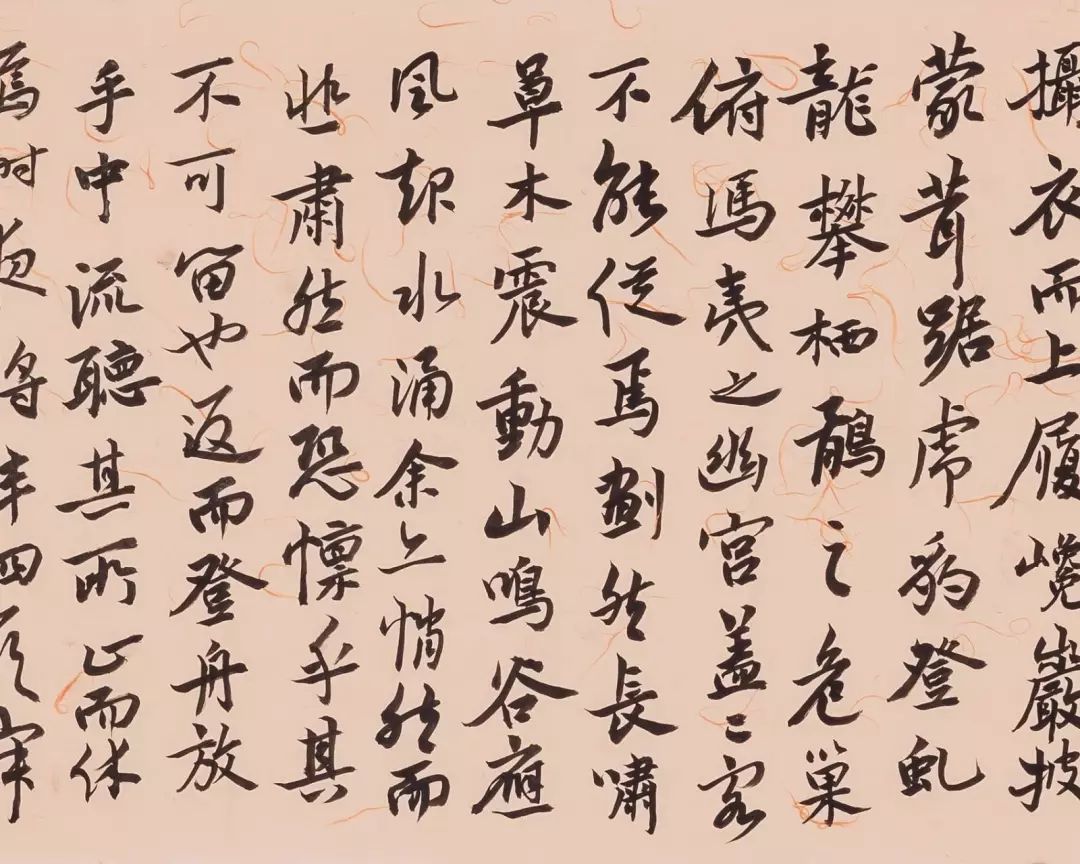 攝衣而上履巉巖披
蒙茸踞虎豹登虬
龍攀栖鶻之危巢
俯馮夷之幽宮蓋二客
不能從焉劃然長嘯
草木震動山鳴谷應
風起水涌余亦悄然而
悲肅然而恐懍乎其
不可留也返而登舟放
乎中流聽其所止而休
焉時夜將半四顧寂